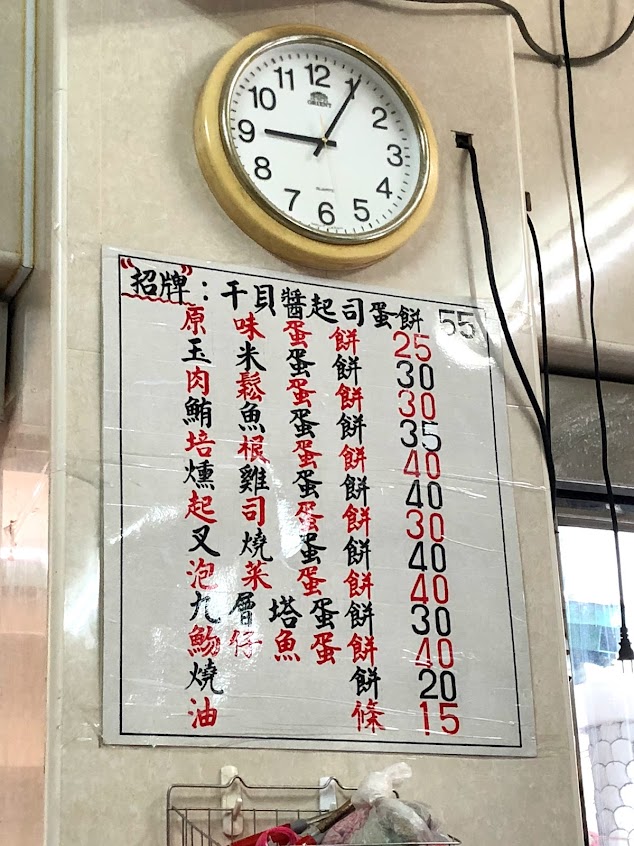 12
11 1
10 2
ORIENT
9 3
8 4
QUARTZ
7 5
6
"招牌"：干貝醬起司蛋餅 55
原味蛋餅 25
玉米蛋餅 30
肉鬆蛋餅 30
鮪魚蛋餅 35
培根蛋餅 40
燻雞蛋餅 40
起司蛋餅 30
叉燒蛋餅 40
泡菜蛋餅 40
九層塔蛋餅 30
魩仔魚蛋餅 40
燒餅 20
油條 15